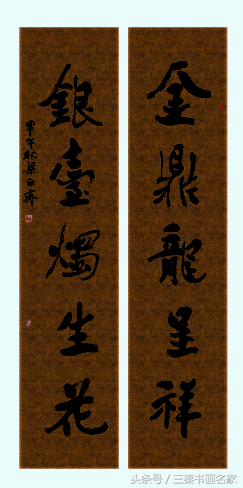 金鼎龍呈祥
銀臺燭生花
甲午秋梁石齋
头条号 / 三秦书画名家